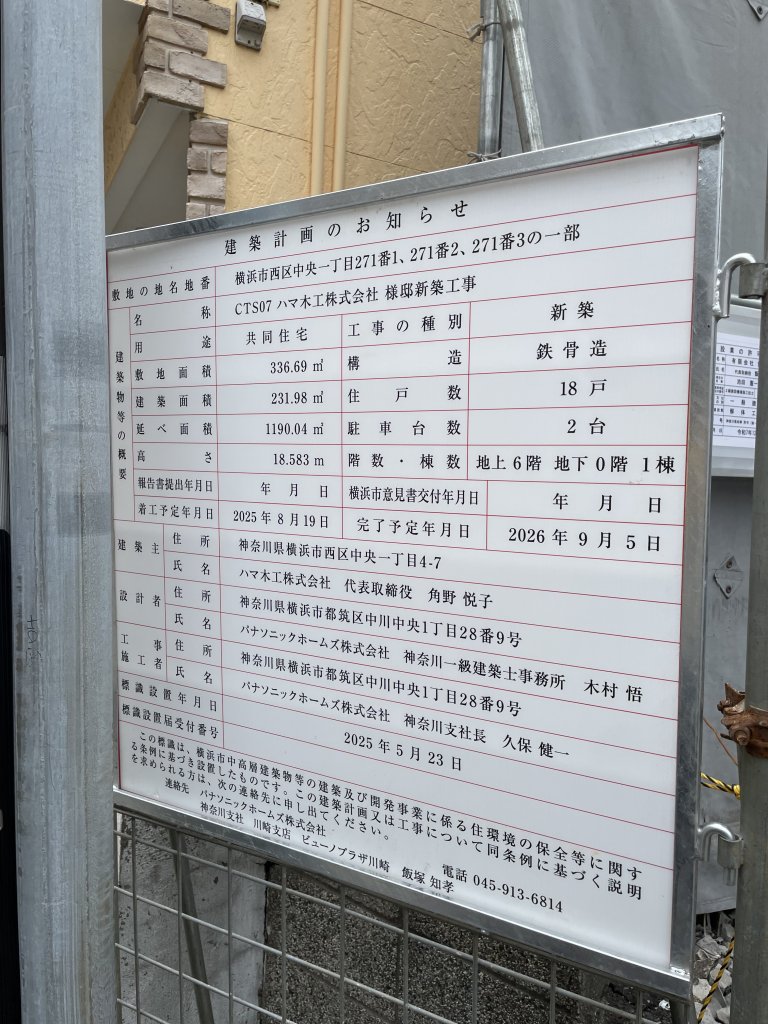 建築計画のお知らせ
敷地の地名地番 横浜市西区中央一丁目271番1、271番2、271番3の一部
建築物等の概要
名称 CTS07 ハマ木工株式会社 様邸新築工事
用途 共同住宅 工事の種別 新築
敷地面積 336.69 ㎡ 構造 鉄骨造
建築面積 231.98 ㎡ 住戸数 18 戸
延べ面積 1190.04 ㎡ 駐車台数 2 台
高さ 18.583 m 階数・棟数 地上 6 階 地下 0 階 1 棟
報告書提出年月日 年 月 日 横浜市意見書交付年月日 年 月 日
着工予定年月日 2025 年 8 月 19 日 完了予定年月日 2026 年 9 月 5 日
建築主 住所 神奈川県横浜市西区中央一丁目4-7
氏名 ハマ木工株式会社 代表取締役 角野 悦子
設計者 住所 神奈川県横浜市都筑区中川中央1丁目28番9号
氏名 パナソニックホームズ株式会社 神奈川一級建築士事務所 木村 悟
工事施工者 住所 神奈川県横浜市都筑区中川中央1丁目28番9号
氏名 パナソニックホームズ株式会社 神奈川支社長 久保 健一
標識設置年月日 2025 年 5 月 23 日
標識設置届受付番号
この標識は、横浜市中高層建築物等の建築及び開発事業に係る住環境の保全等に関す
る条例に基づき設置したものです。この建築計画又は工事について同条例に基づく説明
を求められる方は、次の連絡先に申し出てください。
連絡先 パナソニックホームズ株式会社
神奈川支社 川崎支店 ビューノプラザ川崎 飯塚 知孝 電話 045-913-6814